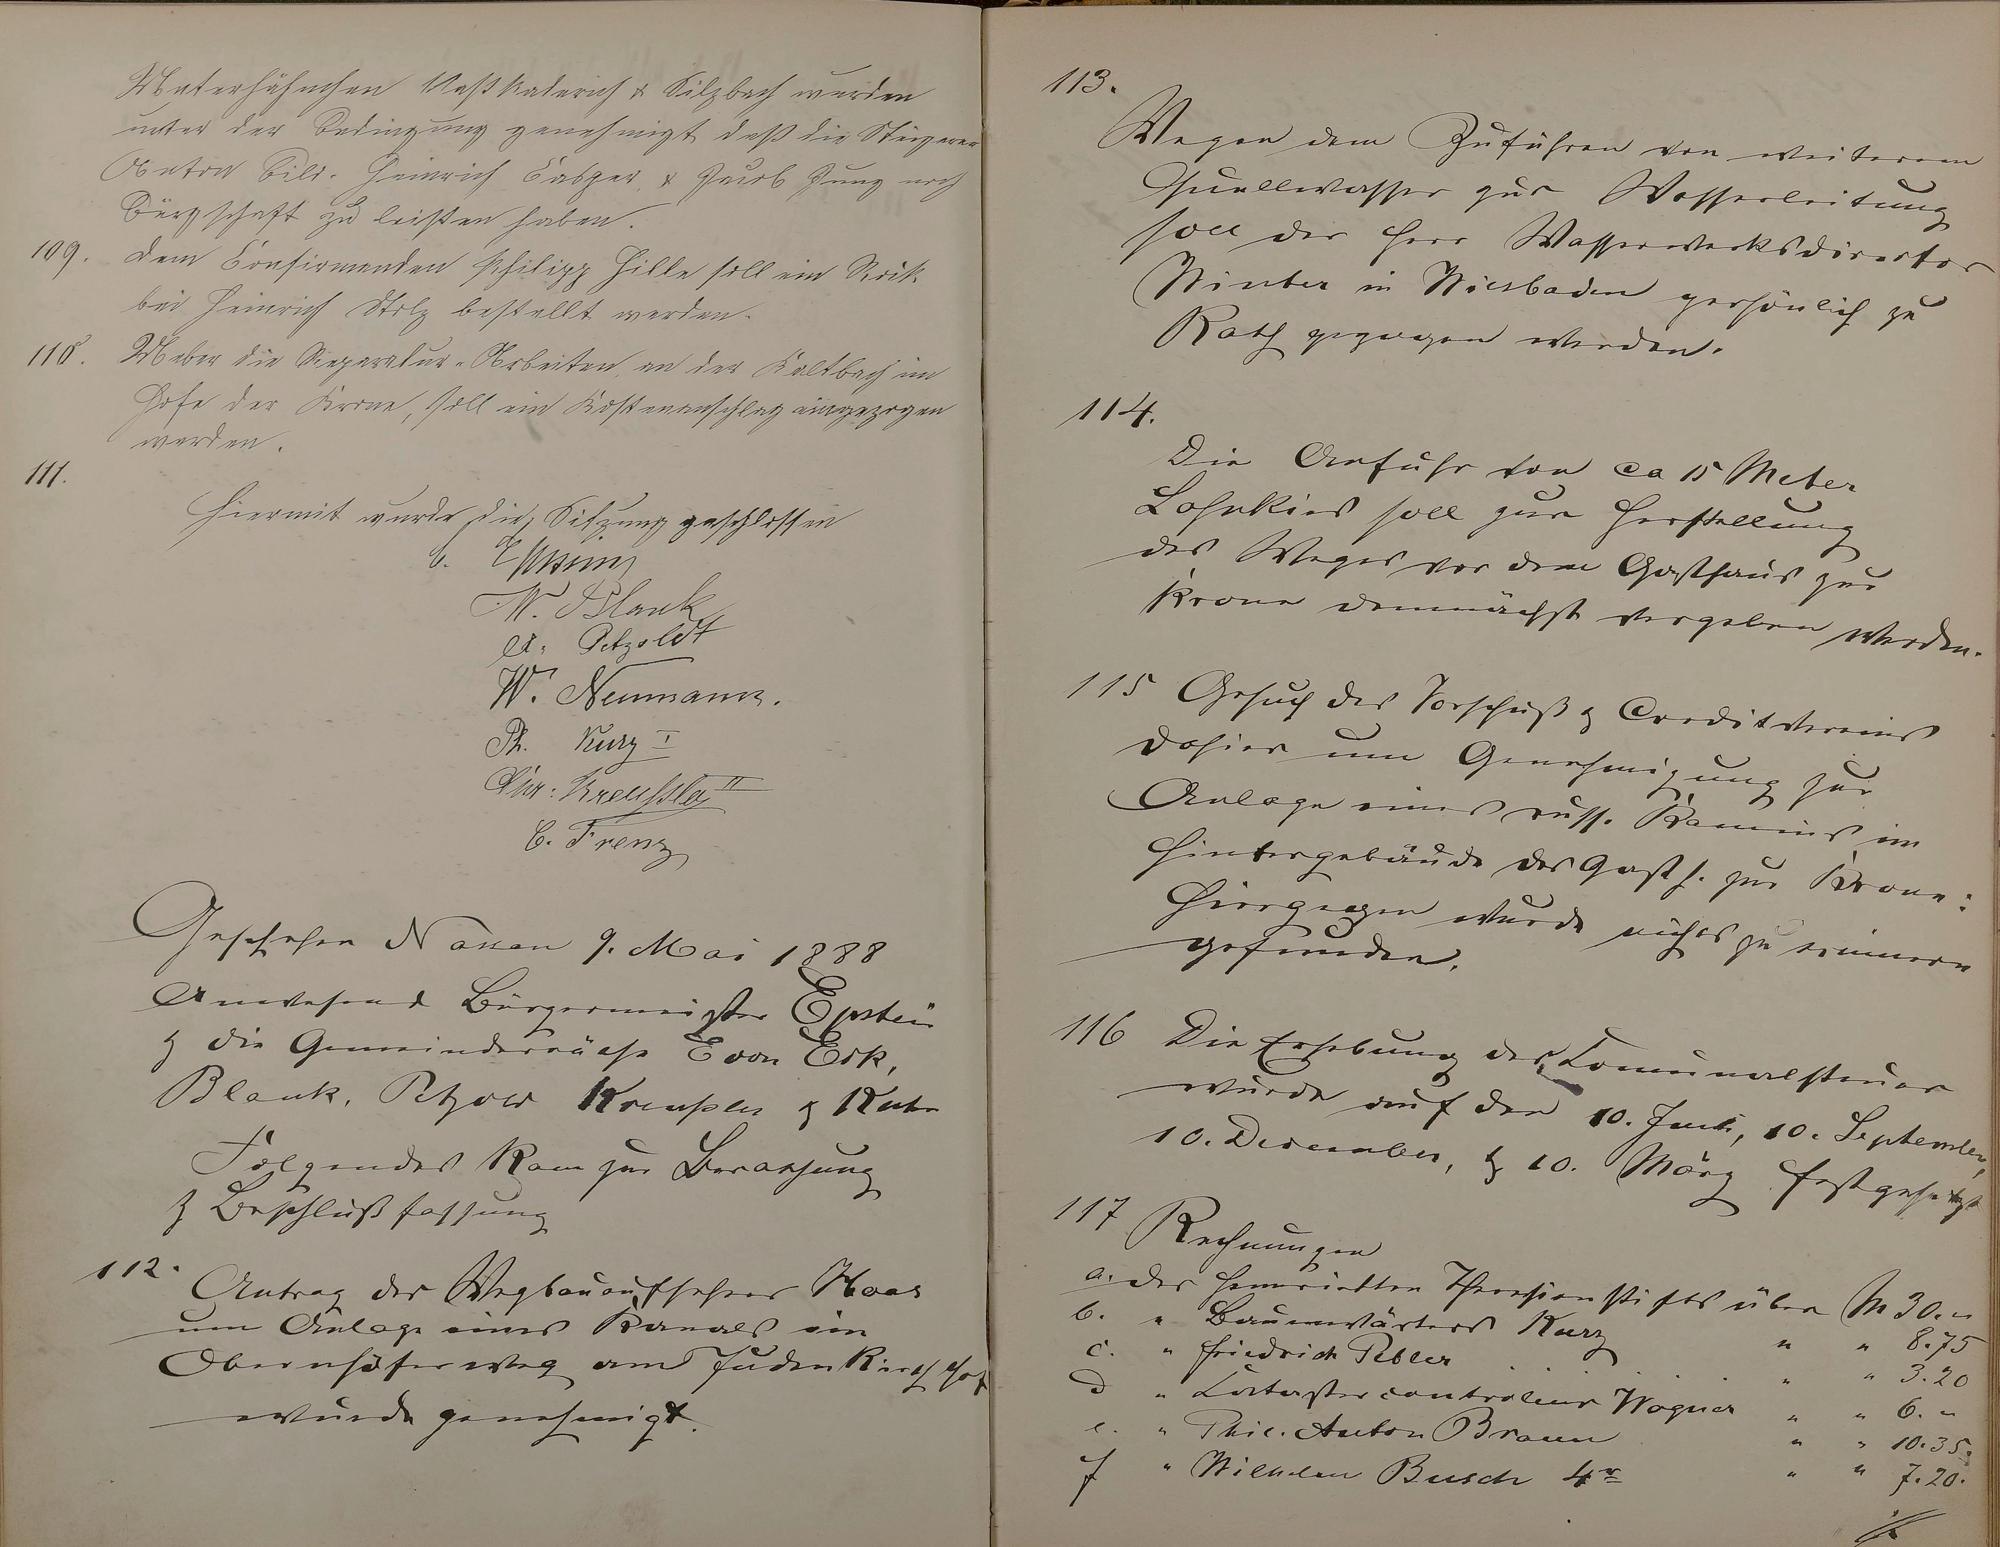 Unterhähnchen Naßkaderich & Silzbach werden
unter der Bedingung genehmigt daß die Steigerer
Anton Bild. Heinrich Casper & Jacob Jung noch
Bürgschaft zu leisten haben.
109. Dem Confirmanden Philipp Hille soll ein Rock
bei Heinrich Stolz bestellt werden.
110. Ueber die Reparatur-Arbeiten an der Kaltbach im
Hofe der Krone, soll ein Kostenanschlag eingezogen
werden.
111.
Hiermit wurde die Sitzung geschlossen
Epstein
W. Blank
A. Petzoldt
W. Neumann.
Ph. Kurz I
Chr. Kreußler II
C. Frenz
Geschehen Nassau 9. Mai 1888
Anwesend Bürgermeister Epstein
& die Gemeinderäthe E von Eck,
Blank, Petzold Kreußler &
Folgendes kam zur Berathung
& Beschlußfassung
112. Antrag des Wegbauaufsehers Haas
um Anlage eines Kanals im
Obernhöferweg am Judenkirchhof
wurde genehmigt.
113.
Wegen dem Zuführen von weiterem
Quellwasser zur Wasserleitung
soll der Herr Wasserwerksdirector
Winter in Wiesbaden persönlich zu
Rath gezogen werden.
114.
Die Anfuhr von ca 15 Meter
Lahnkies soll zur Herstellung
des Weges vor dem Gasthaus zur
Krone demnächst vergeben werden.
115 Gesuch des Vorschuß & Creditvereins
dahier um Genehmigung zur
Anlage eines russ. Kamins im
Hintergebäude des Gasth. zur Krone:
Hiergegen wurde nichts zu erinnern
gefunden.
116 Die Erhebung der Communalsteuer
wurde auf den 10. Juni, 10. September,
10. December, & 10. März festgesetzt
117 Rechnungen
a. des Henrietten Theresienstifts über M 30. "
b. " Baumwärters Kurz " " 8.75
c. " Friedrich Pebler " " 3.20
d " Katastercontroleur Wagner " " 6. "
e. " Phil. Anton Braun " " 10.35.
f " Wilhelm Busch 4r " " 7.20.